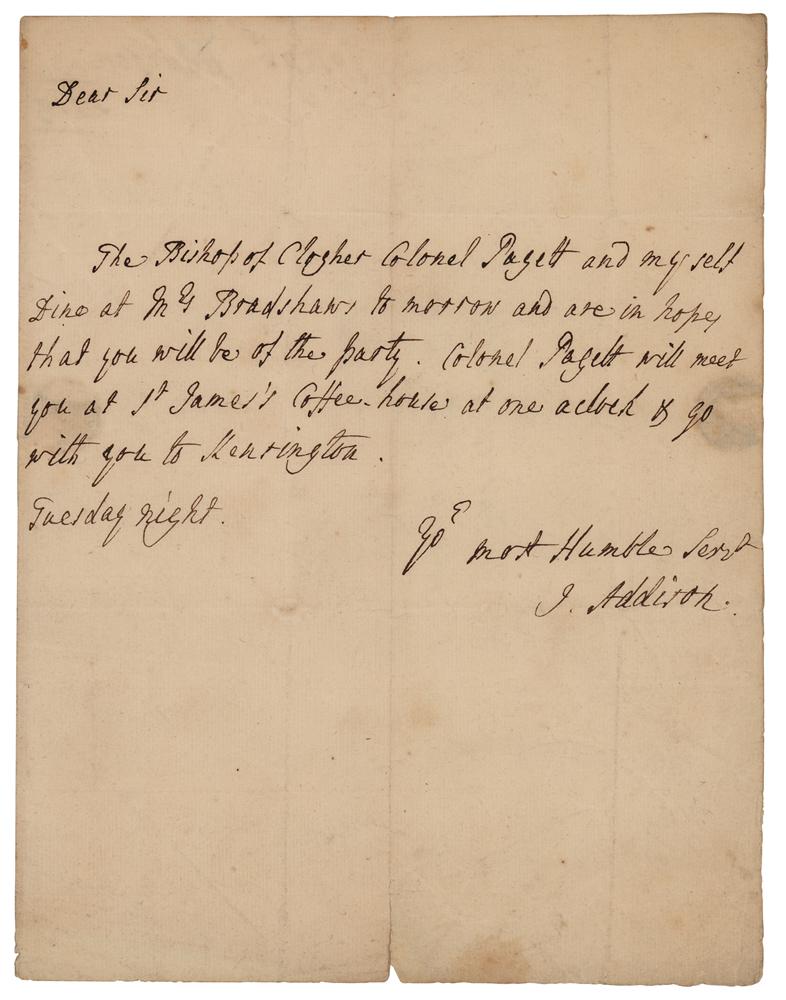 Dear Sir
The Bishop of Clogher Colonel Pagett and my self
Dine at Mrs Bradshaws to morrow and are in hopes
that you will be of the party. Colonel Pagett will meet
you at St James's Coffee-house at one aclock & go
with you to Kensington.
Tuesday night.
Yor most Humble Servt
J. Addison.